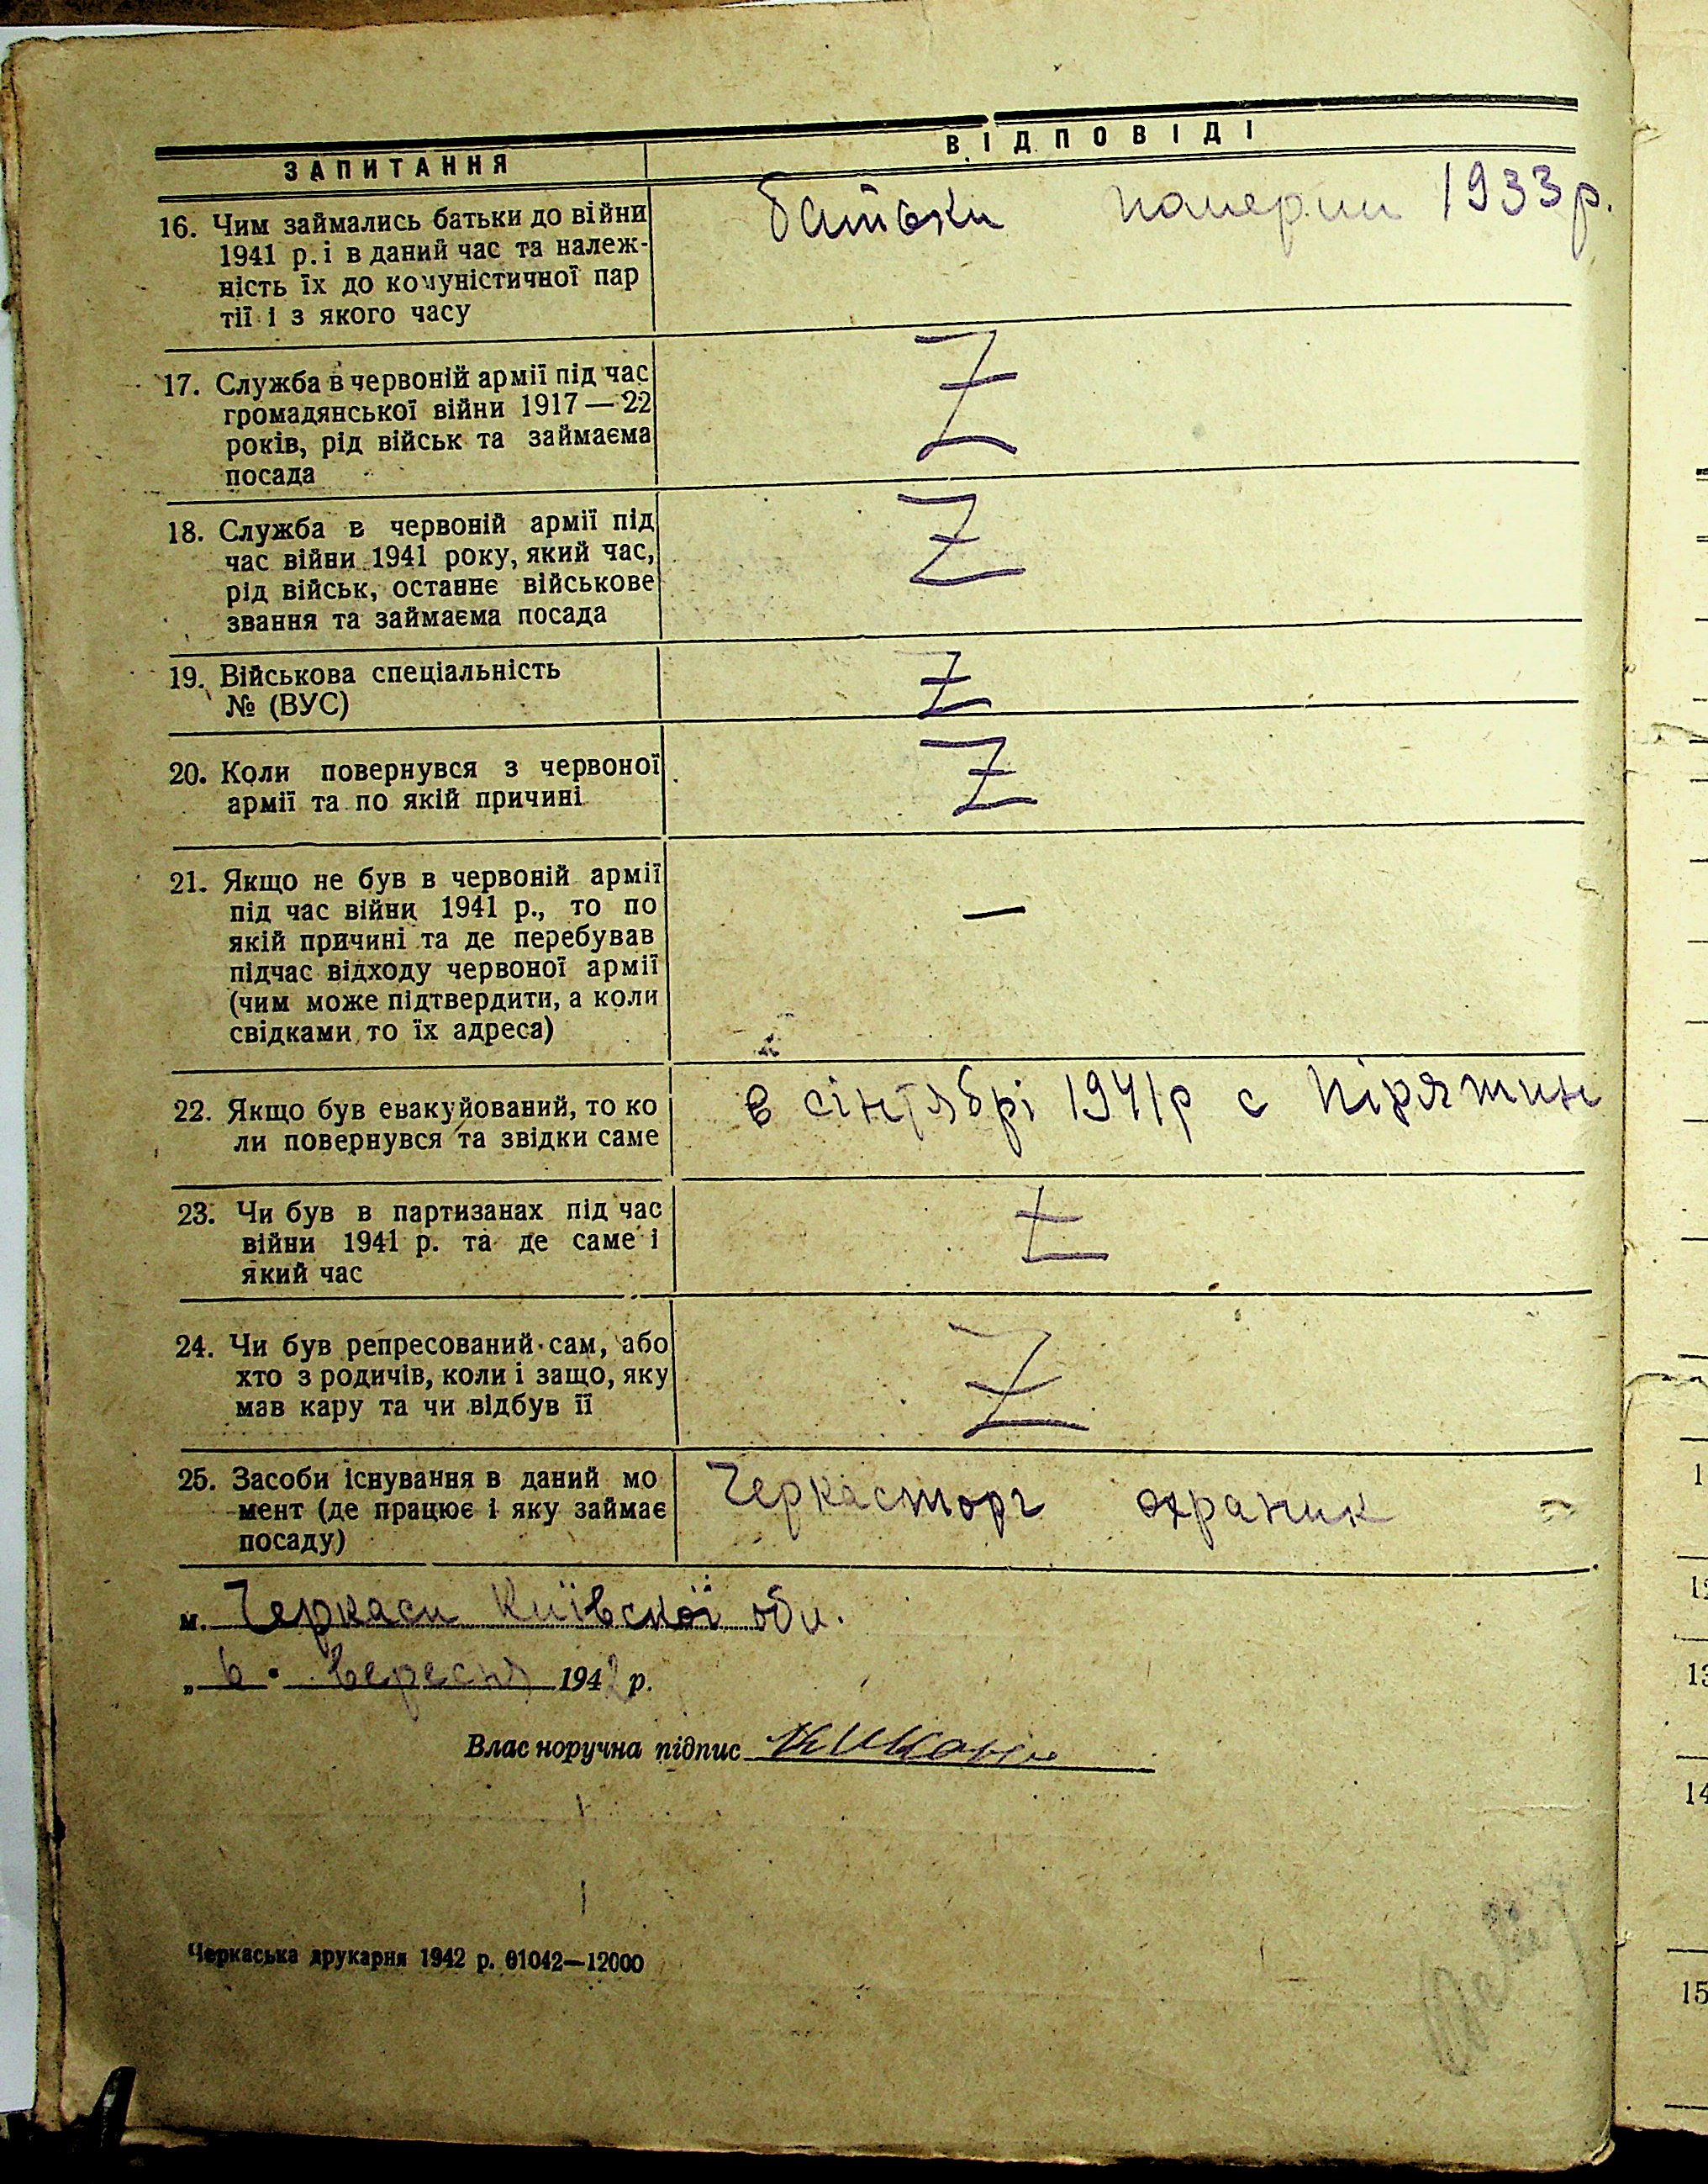 ЗАПИТАННЯ
ВІДПОВІДІ
16. Чим займались батьки до війни
1941 р. і в даний час та належ-
ність їх до комуністичної пар
тії і з якого часу
батьки померли 1933 р.
17. Служба в червоній армії під час
громадянської війни 1917—22
років, рід військ та займаєма
посада
Z
18. Служба в червоній армії під
час війни 1941 року, який час,
рід військ, останнє військове
звання та займаєма посада
Z
19. Військова спеціальність
№ (ВУС)
Z
20. Коли повернувся з червоної
армії та по якій причині
Z
21. Якщо не був в червоній армії
під час війни 1941 р., то по
якій причині та де перебував
підчас відходу червоної армії
(чим може підтвердити, а коли
свідками то їх адреса)
—
22. Якщо був евакуйований, то ко
ли повернувся та звідки саме
в сінтябрі 1941р с Пірятин
23. Чи був в партизанах під час
війни 1941 р. та де саме і
який час
Z
24. Чи був репресований сам, або
хто з родичів, коли і защо, яку
мав кару та чи відбув її
Z
25. Засоби існування в даний мо
мент (де працює і яку займає
посаду)
Черкасторг охраник
м. Черкаси Київскої обл.
„ 6 " вересня 1942 р.
Власноручна підпис
Черкаська друкарня 1942 р. 01042—12000
12
13
14
15